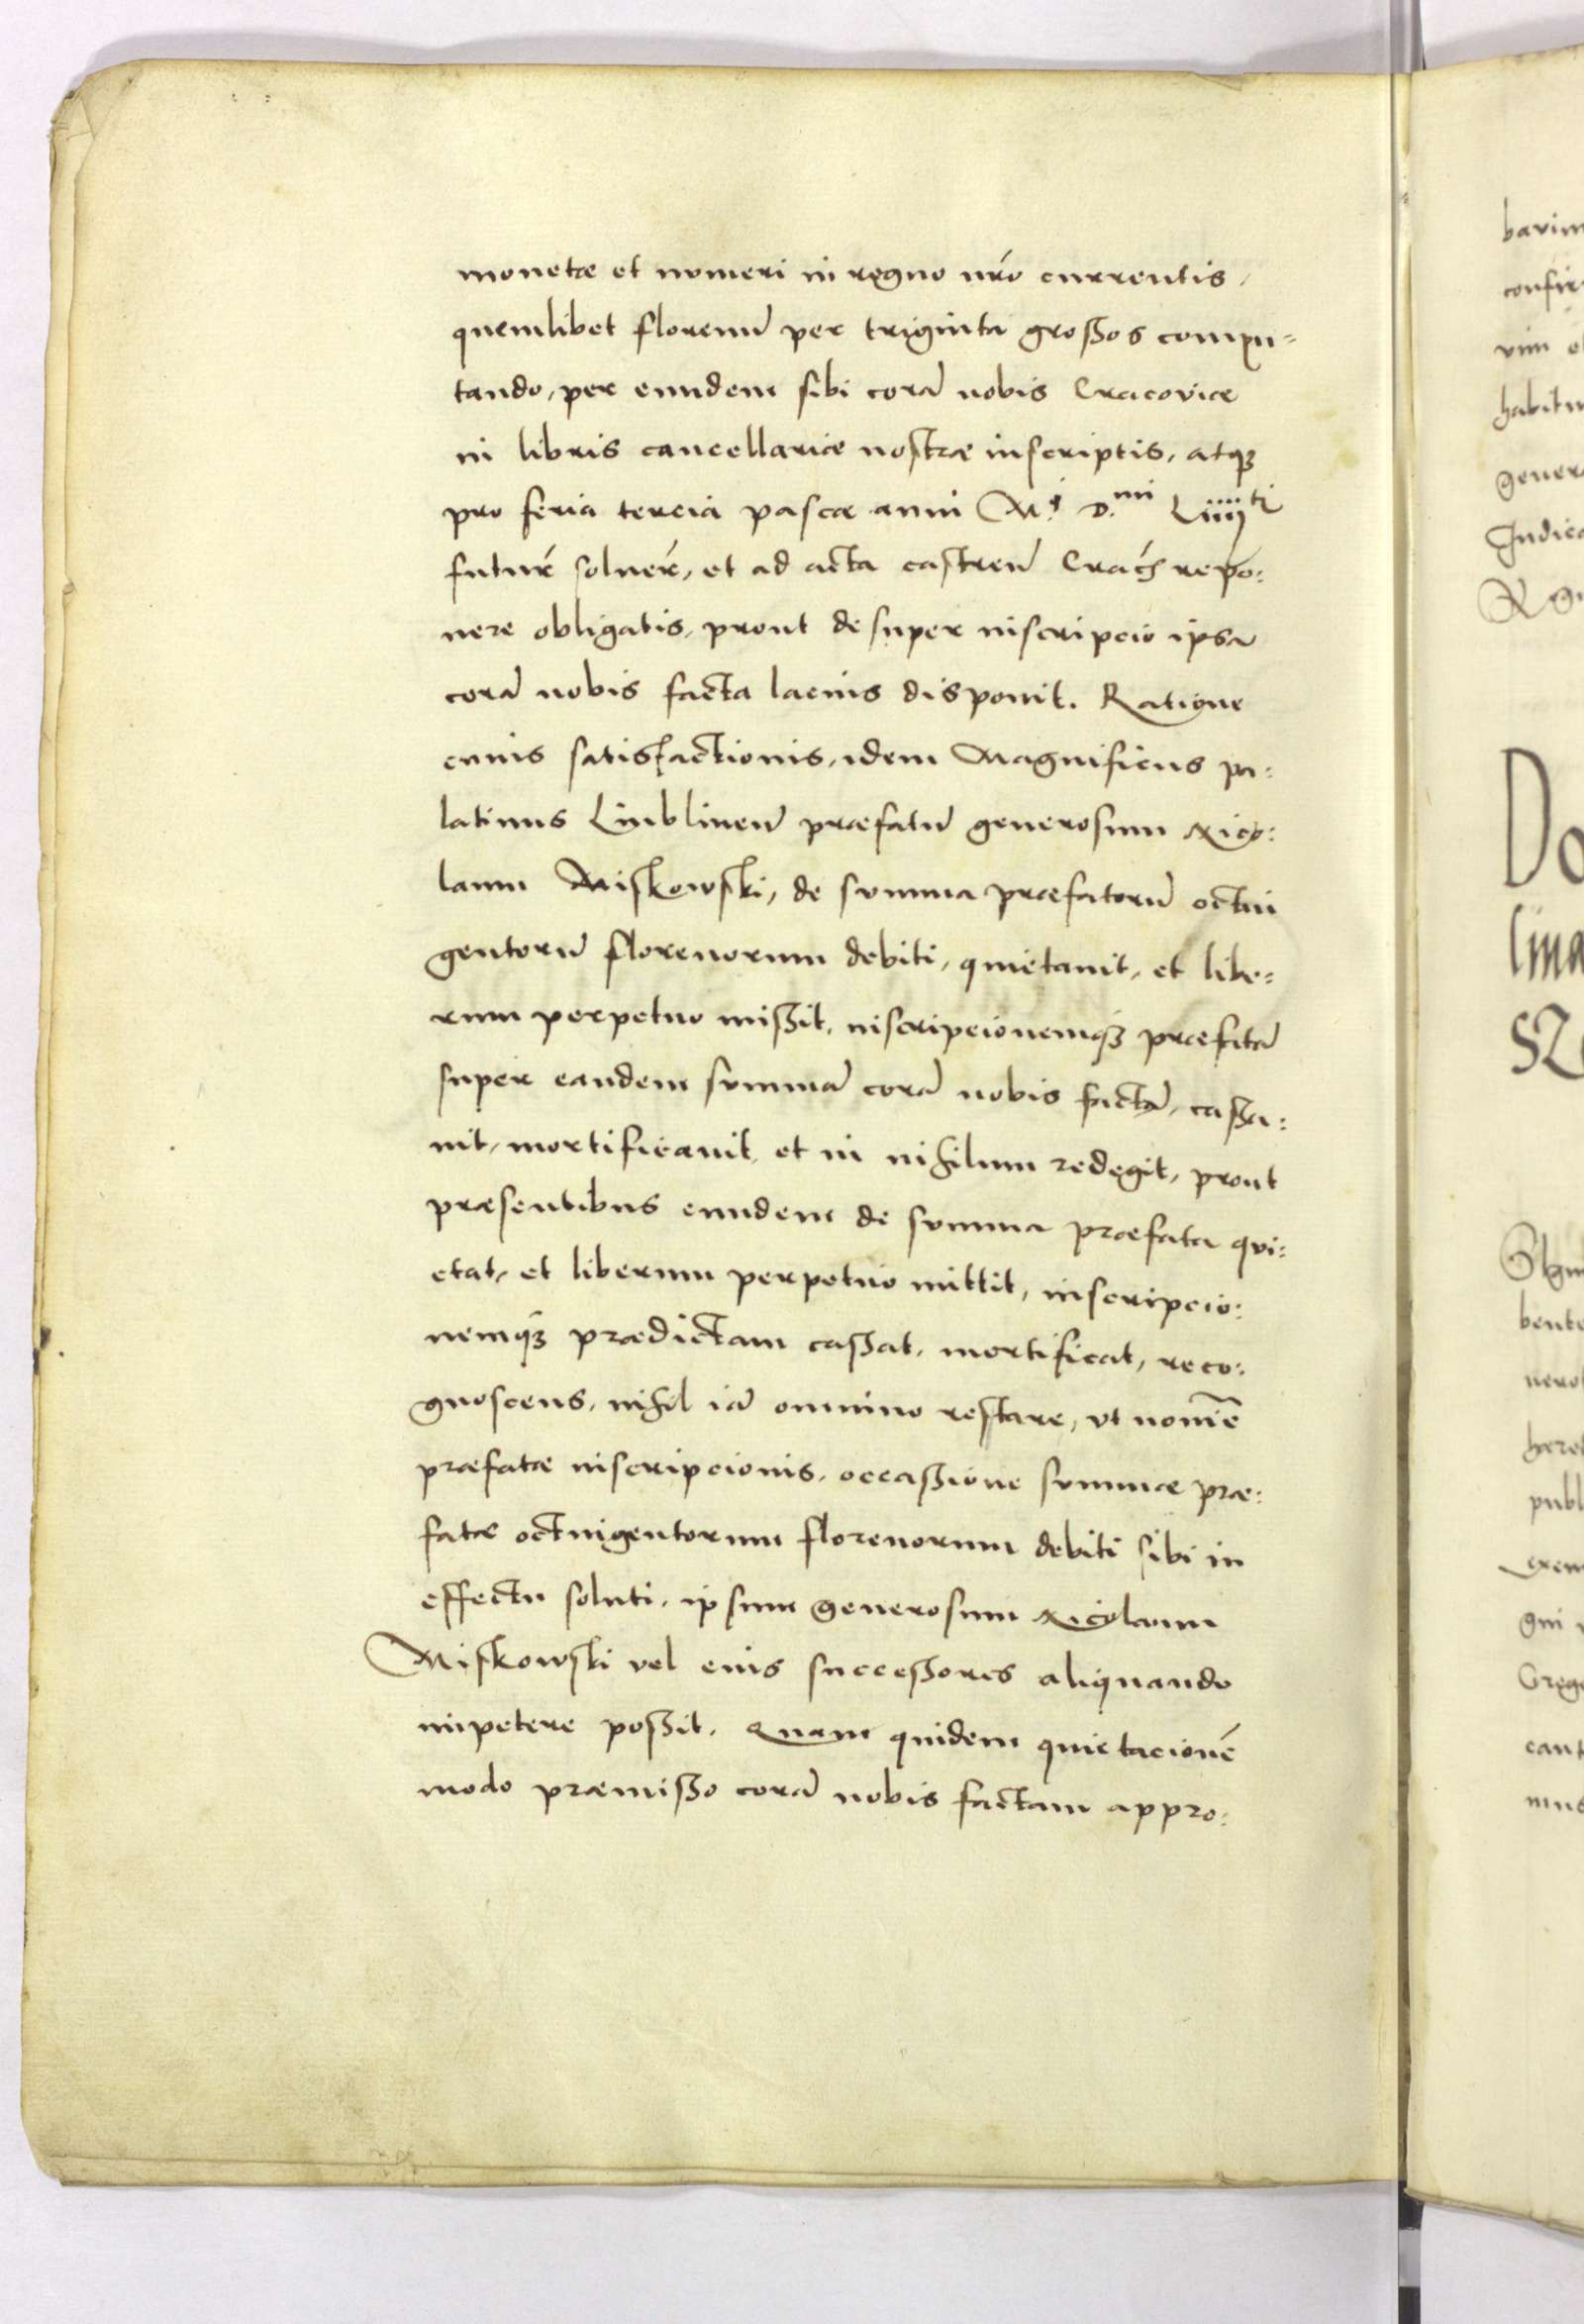 monetæ et nomeri in regno nr̃o currentis,
quemlibet florenũ per triginta großos compu-
tando, per eundem sibi corã nobis Cracoviæ
in libris cancellariæ nostræ inscriptis, atq3
pro feria tercia pascæ anni M.i D.mi Liiii ti
futur̃ soluer̃, et ad acta castreñ Crac̃ repo:
nere obligatis, prout de super inscripcio ipsa
corã nobis facta lacius disponit. Ratione
cuius satisfactionis, idem Magnificus pa:
latinus Liublineñ præfatũ generosum Nico:
laum Miskowski, de summa præfatorũ octin
gentorũ florenorum debiti, quietauit, et libe:
rum perpetuo mißit, inscripcionemq3 præfatã
super eandem summã corã nobis factã, caßa:
uit, mortificauit, et in nihilum redegit, prout
præsentibus eundem de summa præfata qui:
etat, et liberum perpetuo mittit, inscripcio:
nemq3 prædictam caßat, mortificat, reco:
gnoscens, nihil iã omnino restare, vt noīe
præfatæ inscripcionis, occaßione summæ præ:
fatæ octuigentorum florenorum debiti sibi in
effectu soluti, ipsum generosum Nicolaum
Miskowski vel eius succeßores aliquando
impetere poßit. Quam quidem quietacionẽ
modo præmißo corã nobis factam appro:
barim
confir
vim et
habitu
genero
Indica
Do
lina
bente
publ
Grego
cant
mus